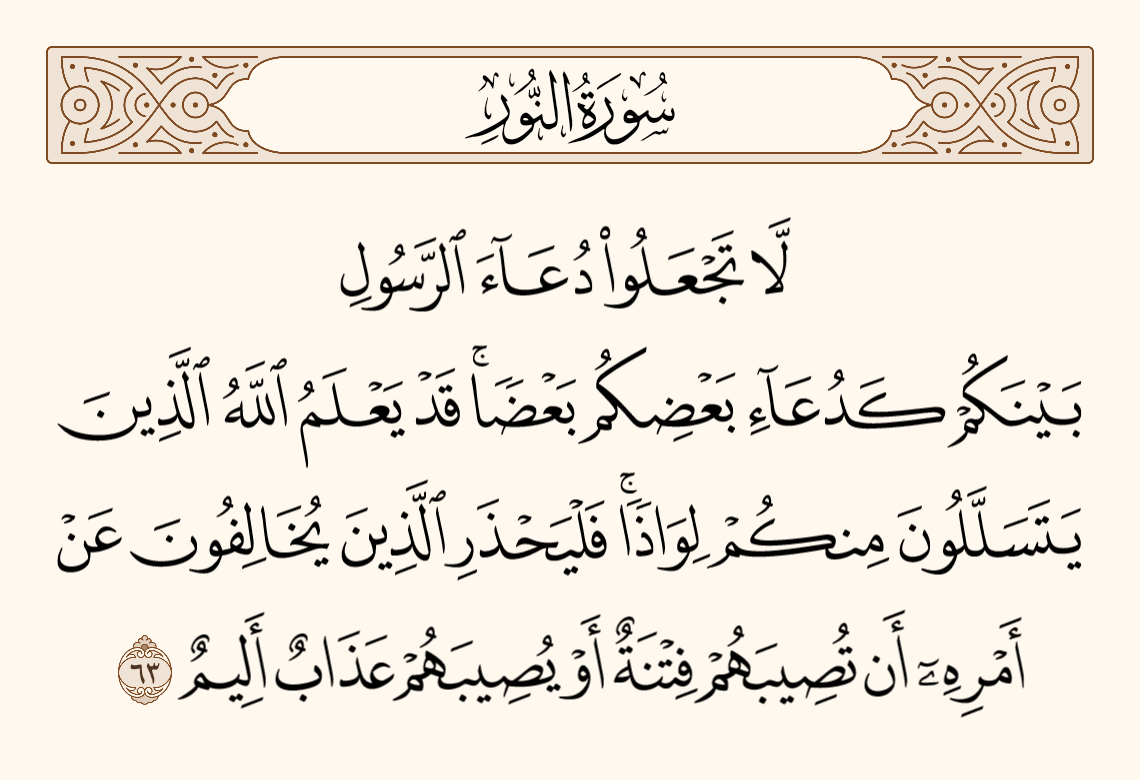 سُورَةُ النُّورِ
لَّا تَجْعَلُوا۟ دُعَآءَ ٱلرَّسُولِ
بَيْنَكُمْ كَدُعَآءِ بَعْضِكُم بَعْضًا ۚ قَدْ يَعْلَمُ ٱللَّهُ ٱلَّذِينَ
يَتَسَلَّلُونَ مِنكُمْ لِوَاذًا ۚ فَلْيَحْذَرِ ٱلَّذِينَ يُخَالِفُونَ عَنْ
أَمْرِهِۦٓ أَن تُصِيبَهُمْ فِتْنَةٌ أَوْ يُصِيبَهُمْ عَذَابٌ أَلِيمٌ ٦٣